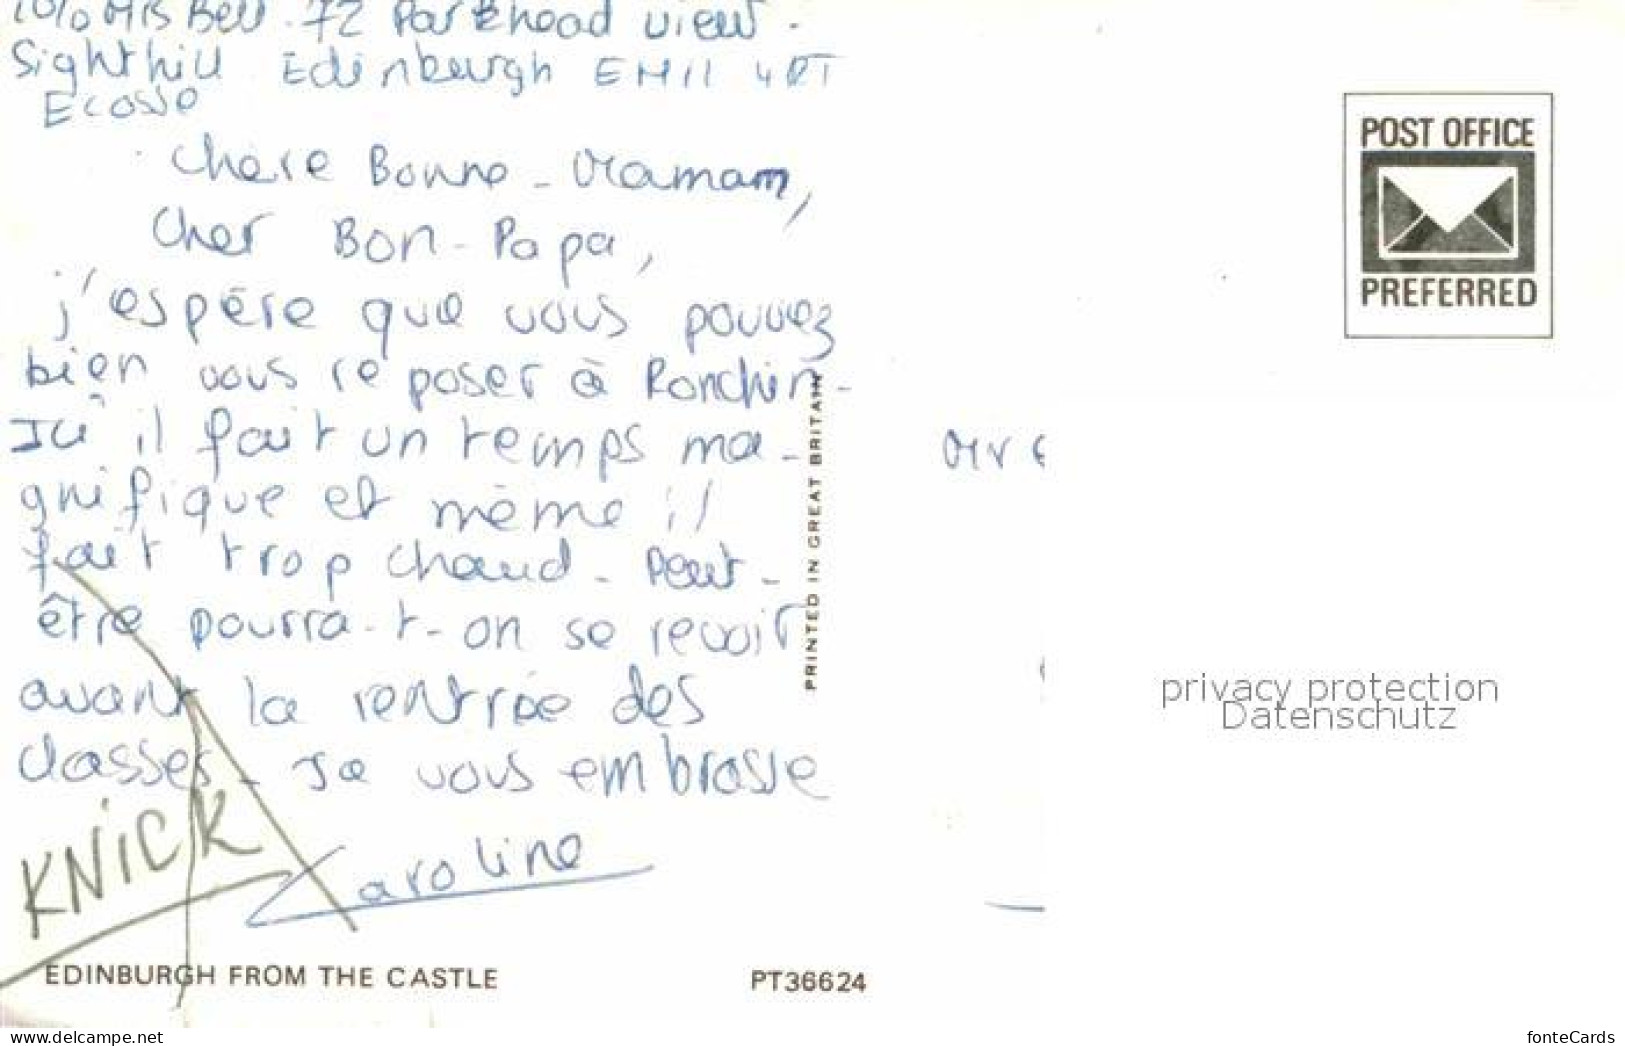 c/o Mrs Bell. 72 Parkhead view.
Sighthill Edinburgh EH11 4RT
Ecosse
Chère Bonne-Maman,
Cher Bon-Papa,
j'espère que vous pouvez
bien vous reposer à Ronchin.
Ici il fait un temps ma-
gnifique et même il
fait trop chaud. Peut-
être pourra-t-on se revoir
avant la rentrée des
classes. Je vous embrasse
Caroline
KNICK
EDINBURGH FROM THE CASTLE
PT36624
PRINTED IN GREAT BRITAIN
POST OFFICE
PREFERRED
privacy protection
Datenschutz
www.delcampe.net
fonteCards